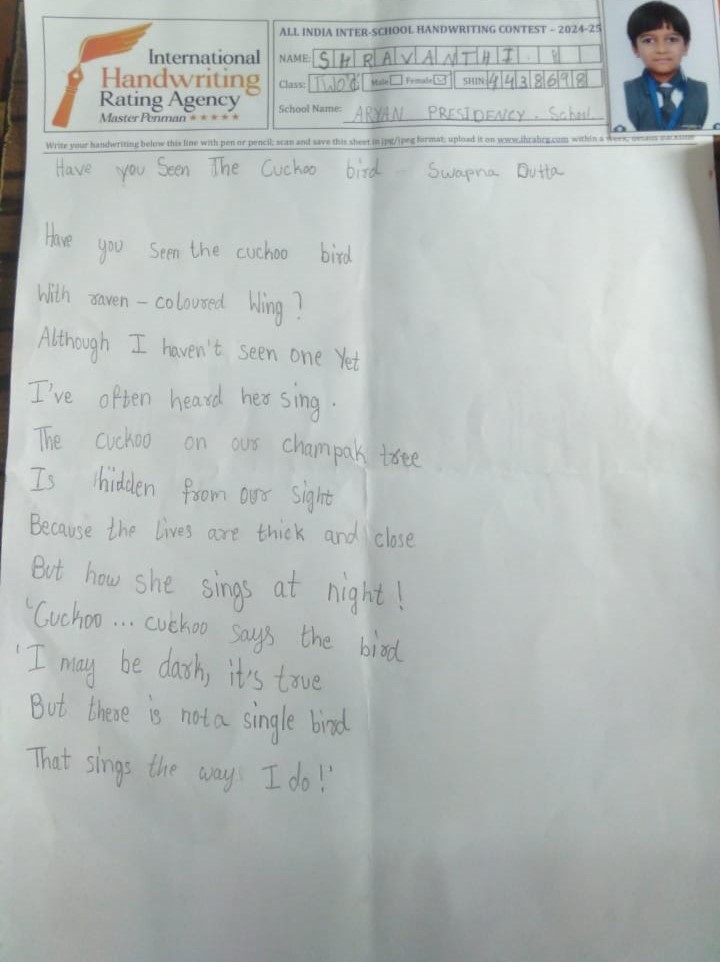 International
Handwriting
Rating Agency
Master Penman ★★★★★
ALL INDIA INTER-SCHOOL HANDWRITING CONTEST – 2024-25
NAME: SHRAVANTHI. Y
Class: Male Female SHIN: 4438698
School Name: ARYAN PRESIDENCY. School
Write your handwriting below this line with pen or pencil; scan and save this sheet in jpg/jpeg format; upload it on www.ihrahrg.com within a week,
Have you Seen The Cuckoo bird - Swapna Dutta
Have you Seen the cuckoo bird
With raven - coloured Wing?
Although I haven't seen one Yet
I've often heard her sing.
The cuckoo on our champak tree
Is hidden from our sight
Because the lives are thick and close
But how she sings at night!
'Cuckoo ... cuckoo says the bird
'I may be dark, it's true
But there is not a single bird
That sings the way I do!'